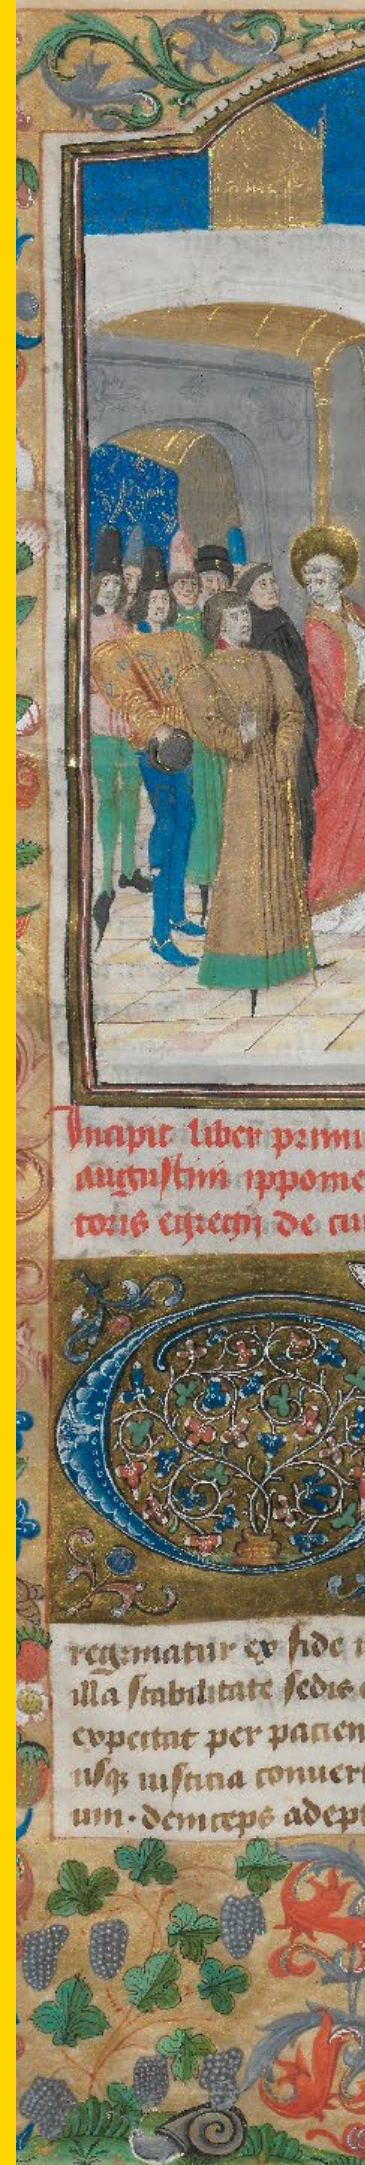 Incipit liber primu
augustini ippone
toris egregij de ciui
G
regrinatur ex fide i
illa stabilitate sedis e
expectat per pacien
usq iusticia conuert
um. deinceps adept